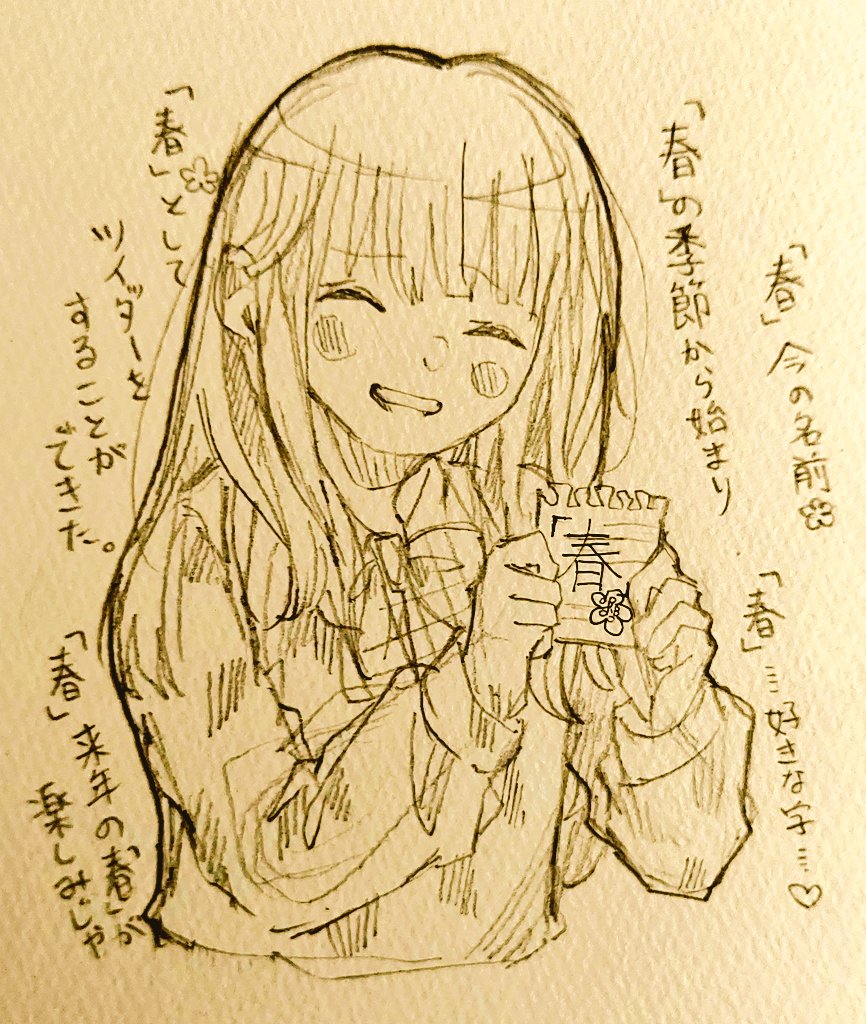 「春」今の名前
「春」…好きな字…♡
「春」の季節から始まり
「春
「春」として
ツイッターを
することが
できた。
「春」来年の「春」が
楽しみじゃ